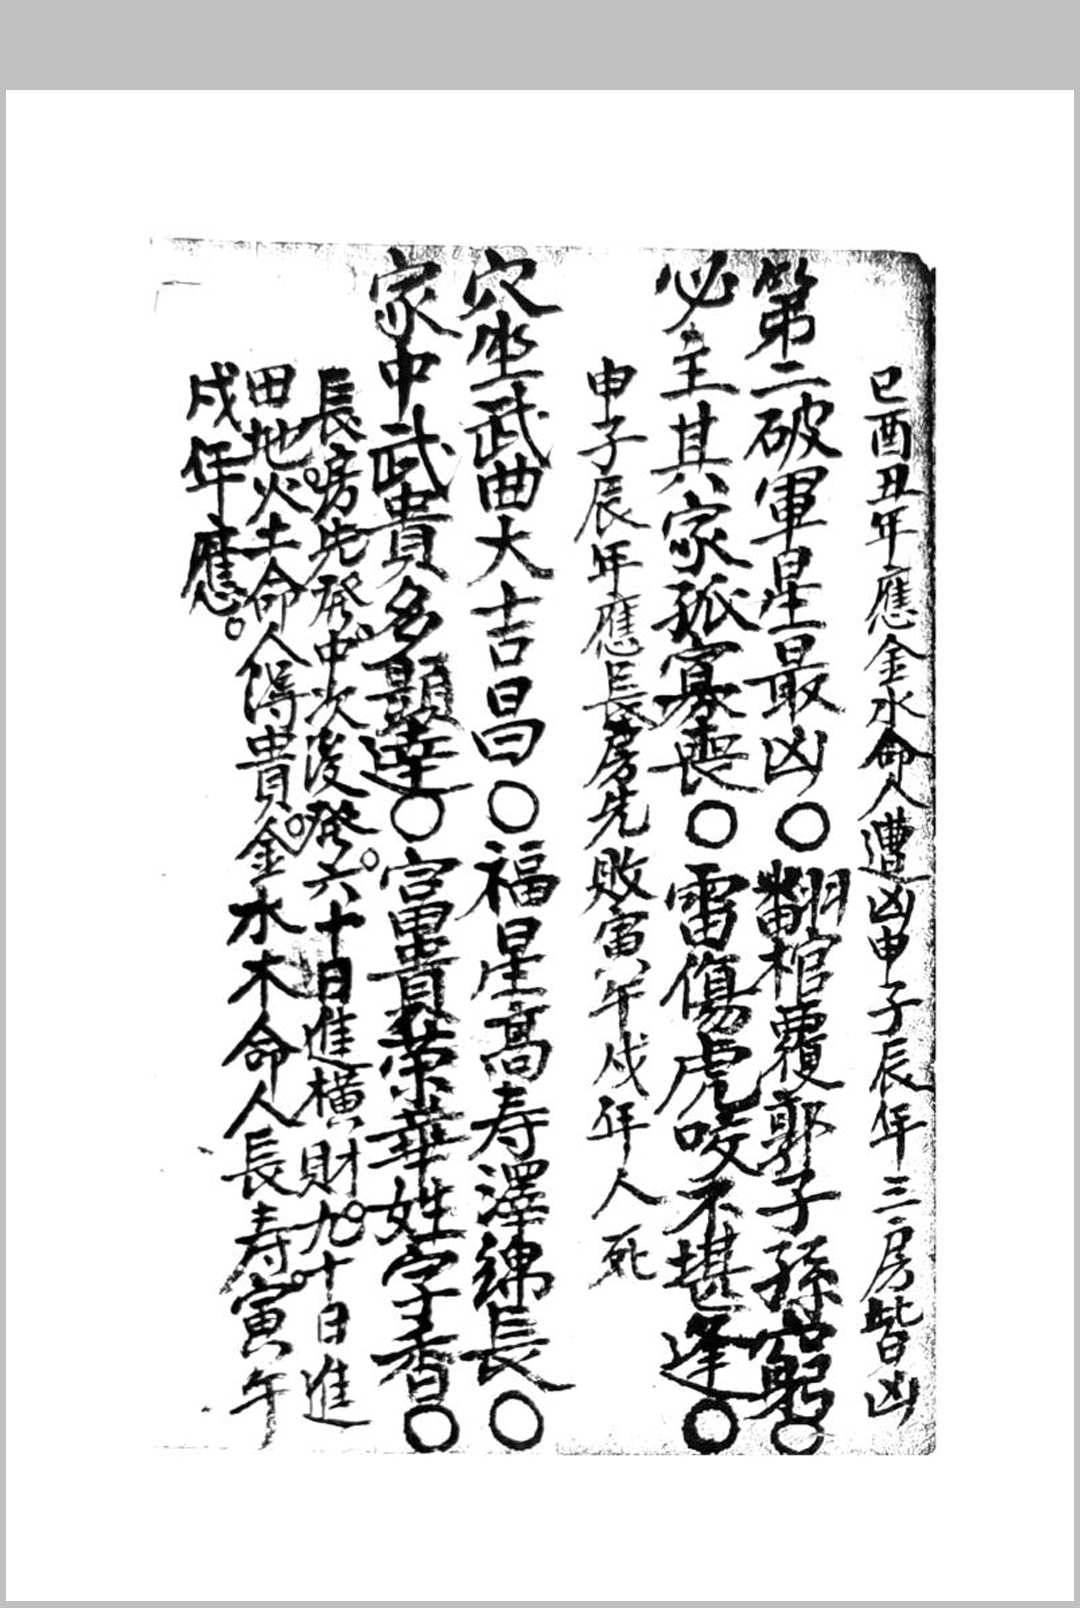 巳酉丑年應金水命人遭凶申子辰年三房皆凶
第二破軍星最凶〇翻棺覆郭子孫窮〇
必主其家孤寡喪〇雷傷虎咬不堪逢〇
申子辰年應長房先敗寅午戌年人死
穴坐武曲大吉昌〇福星高寿澤綿長〇
家中武貴多顯達〇富貴荣華姓字香〇
長房先発。中次後発。六十日進横財。九十日進
田地火土命人得貴。金水木命人長寿。寅午
戌年應。